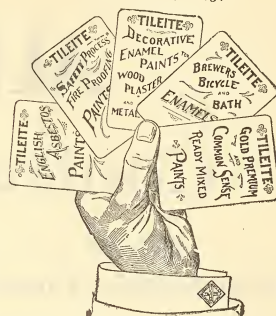 TILEITE
ENGLISH
ASBESTOS
PAINTS
TILEITE
PROCESS
FIRE PROOFING
PAINTS
TILEITE
DECORATIVE
ENAMEL
PAINTS
WOOD
PLASTER
AND
METAL
TILEITE
BREWERS
BICYCLE
AND
BATH
ENAMELS
TILEITE
GOLD PREMIUM
AND
COMMON SENSE
READY MIXED
PAINTS